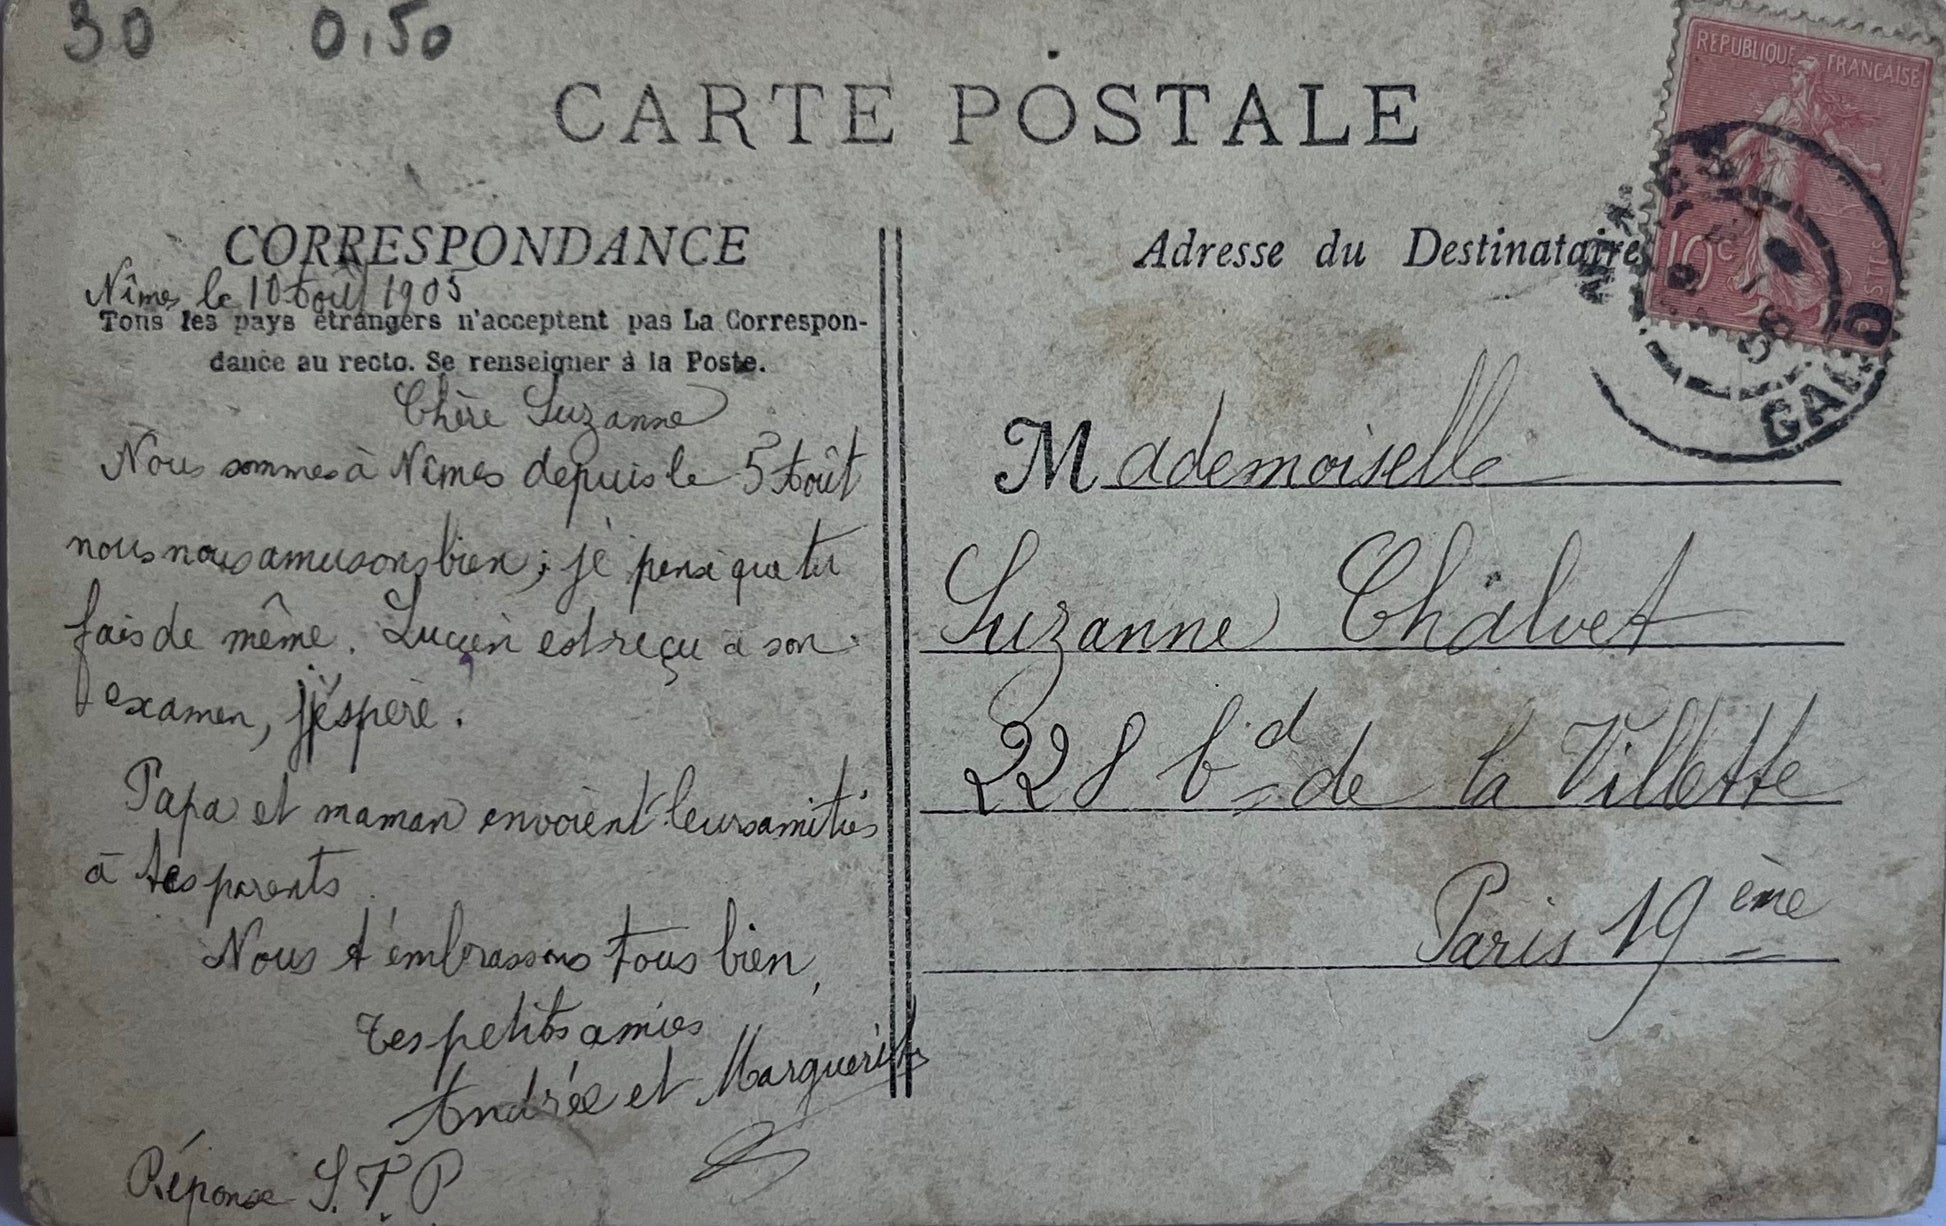 30 0,50
CARTE POSTALE
REPUBLIQUE FRANÇAISE
10c
POSTES
NIMES
GARD
CORRESPONDANCE
Nîmes le 10 Août 1905
Tous les pays étrangers n'acceptent pas La Correspon-
dance au recto. Se renseigner à la Poste.
Chère Suzanne
Nous sommes à Nîmes depuis le 5 Août
nous nous amusons bien ; je pense que tu
fais de même. Lucien est reçu à son
examen, j'éspère.
Papa et maman envoient leurs amitiés
à tes parents.
Nous t'embrassons tous bien,
Tes petites amies
Andrée et Marguerite
Réponse S. V. P.
Adresse du Destinataire
Mademoiselle
Suzanne Chalvet
228 bd de la Villette
Paris 19ème